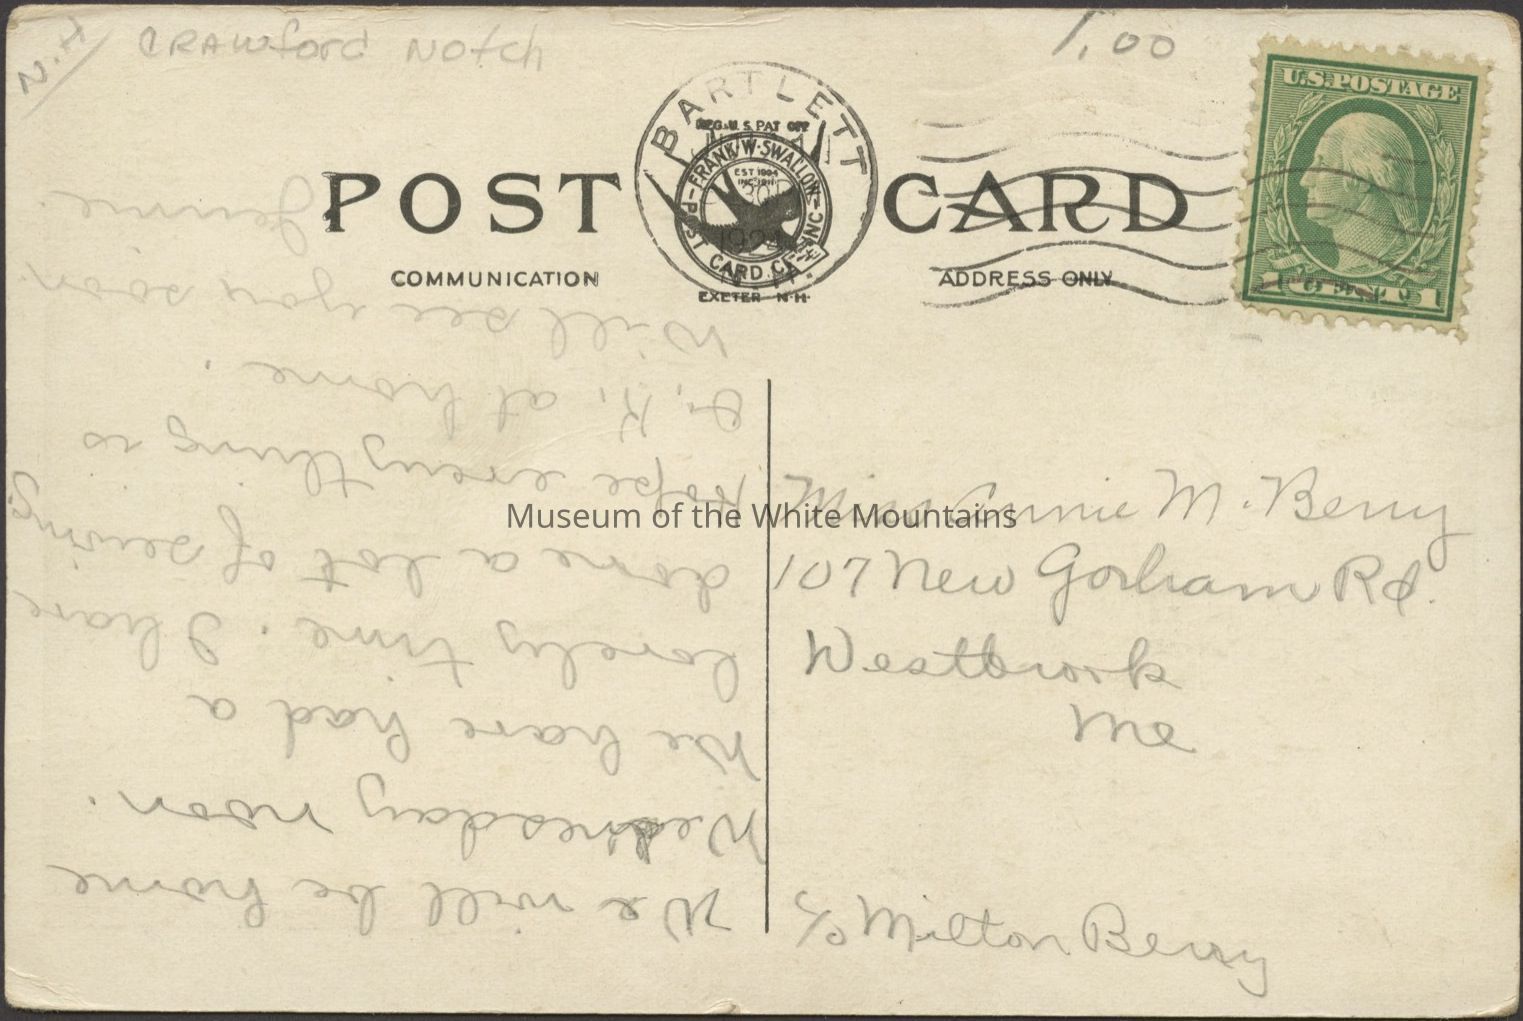 N.H.
CRAWford NOtch
1.00
U.S. POSTAGE
1 CENT 1
BARTLETT
REG. U.S. PAT OFF
FRANK W. SWALLOW
POST CARD CO. INC
EST 1904
INC 1911
30
N.H.
EXETER N.H.
POST CARD
COMMUNICATION
ADDRESS ONLY
We will be home
Wednesday noon.
We have had a
lovely time. I have
done a lot of sewing.
Hope everything is
O.K. at home.
Will see you soon
Jennie
Miss Annie M. Berry
107 New Gorham Rd.
Westbrook
Me
c/o Milton Berry
Museum of the White Mountains